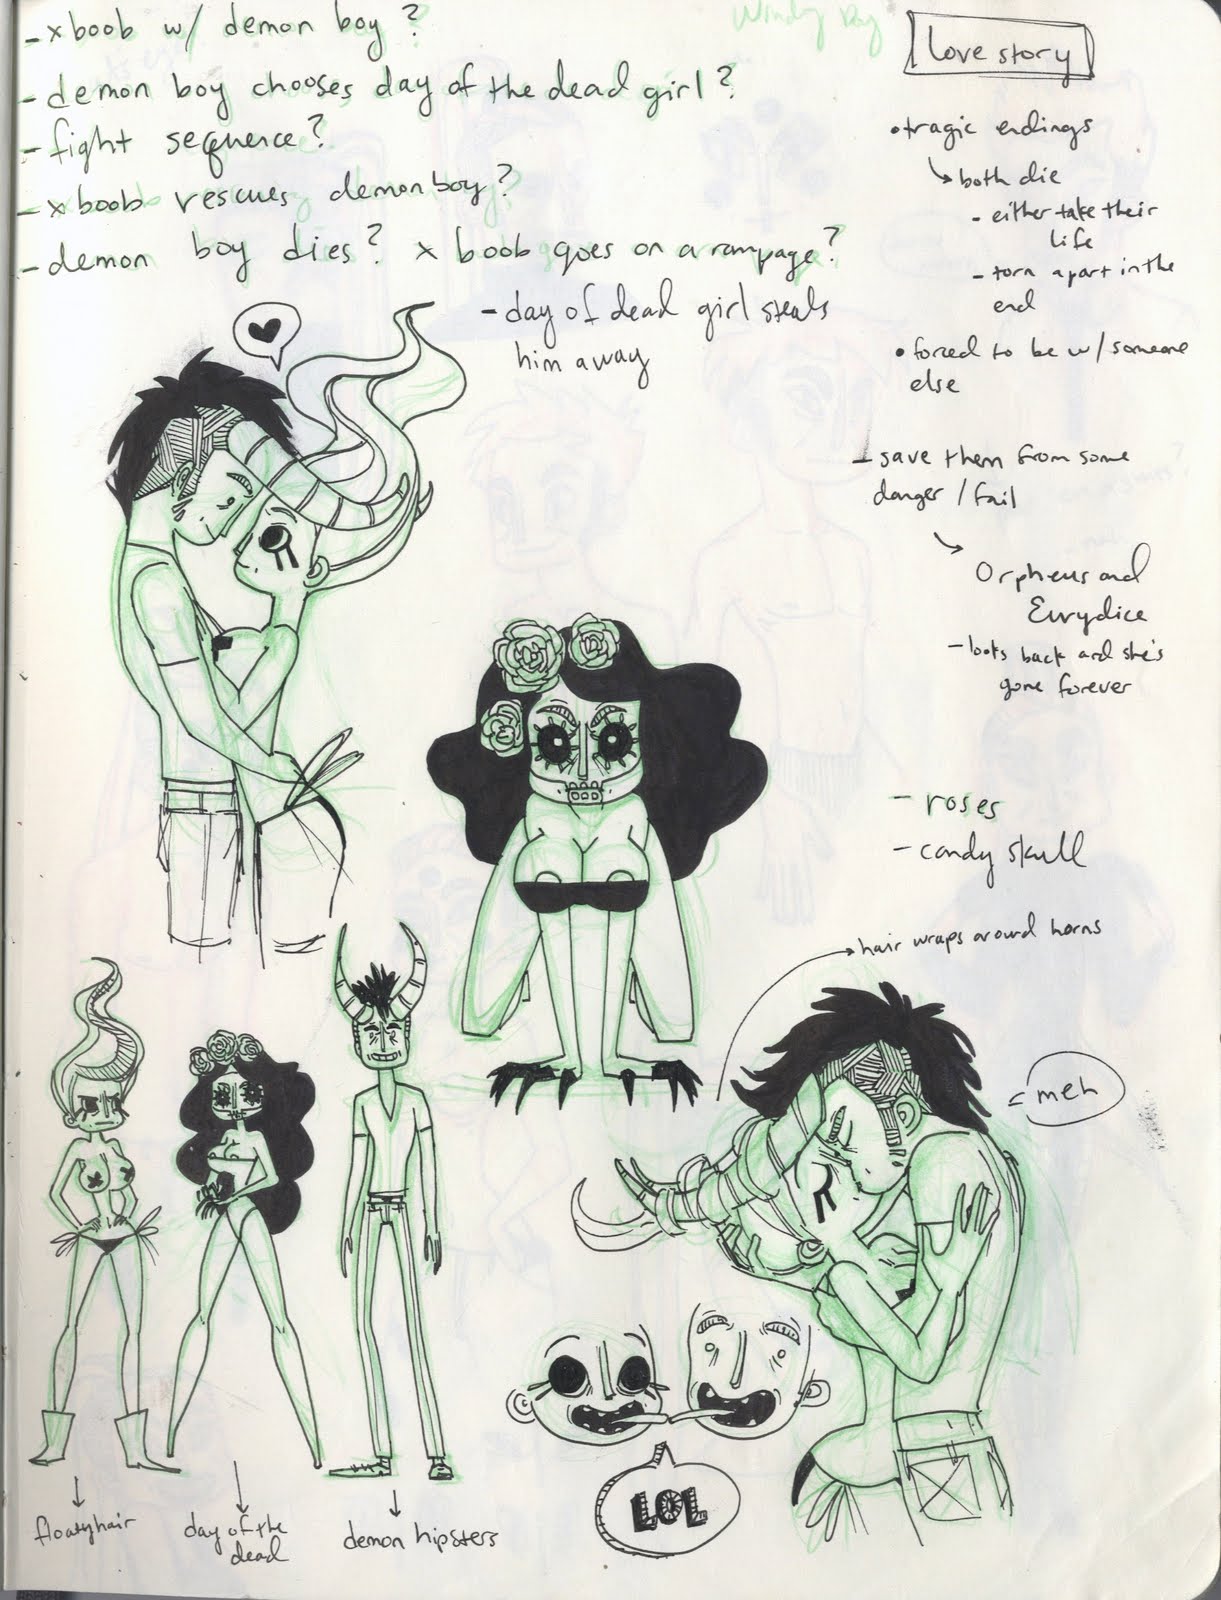 - x boob w/ demon boy?
- demon boy chooses day of the dead girl?
- fight sequence?
- x boob rescues demon boy?
- demon boy dies? x boob goes on a rampage?
- day of dead girl steals
him away
Windy Day
Love story
• tragic endings
↳ both die
- either take their
life
- torn apart in the
end
• forced to be w/ someone
else
- save them from some
danger / fail
Orpheus and
Eurydice
- looks back and she's
gone forever
- roses
- candy skull
hair wraps around horns
= meh
LOL
floaty hair
day of the
dead
demon hipsters